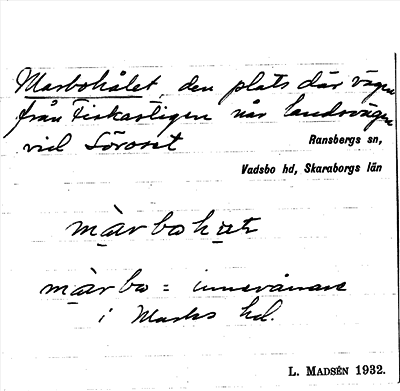 Marbohålet, den plats där vägen
från Fiskastigen når landsvägen
vid Söräset
Ransbergs sn,
Vadsbo hd, Skaraborgs län
màrbo
màrbo = innevånare
i Marks hd.
L. MADSÉN 1932.